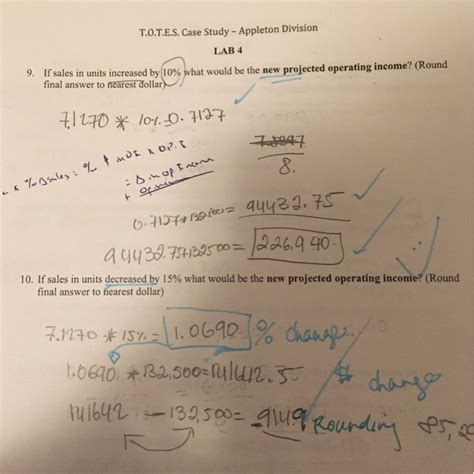 T.O.T.E.S. Case Study – Appleton Division
LAB 4
9. If sales in units increased by 10% what would be the new projected operating income? (Round
final answer to nearest dollar)
7.1270 * 10% = 0.7127
8.
x %Δsales = %
0.7127*132500= 94432.75
94432.75+132500= 226.940.
10. If sales in units decreased by 15% what would be the new projected operating income? (Round
final answer to nearest dollar)
7.1270 * 15% = 1.0690 % change
1.0690 * 132,500=141642.35 $ change
141642 – 132,500= 9149 Rounding